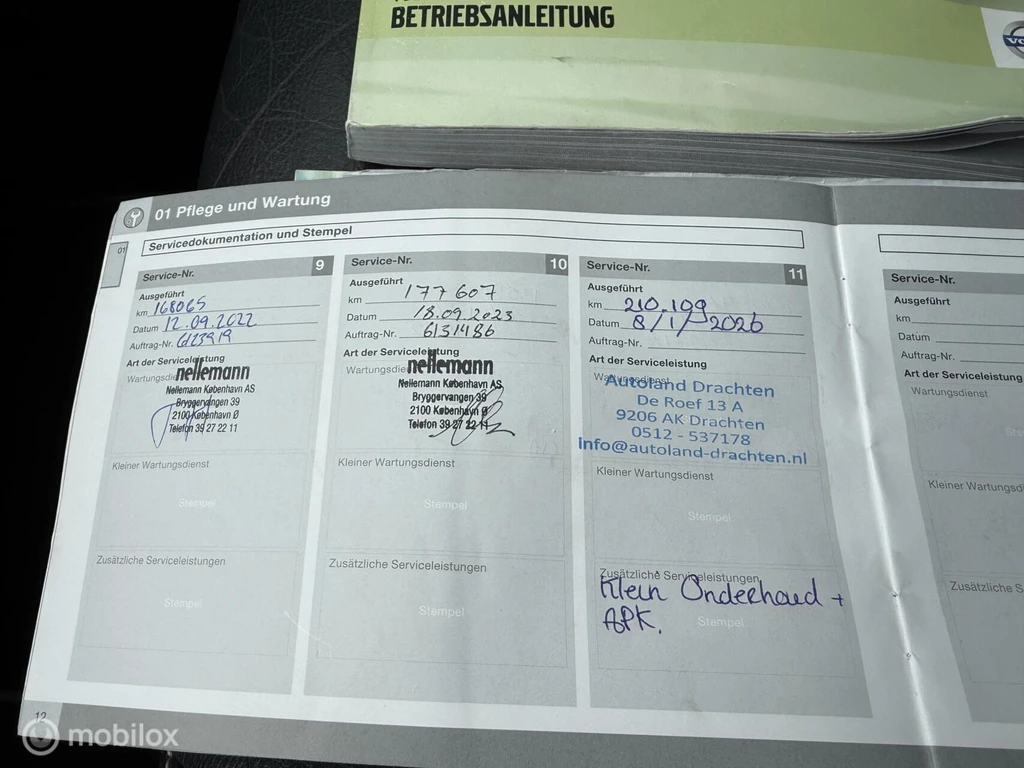 BETRIEBSANLEITUNG
01 Pflege und Wartung
01
Servicedokumentation und Stempel
Service-Nr. 9
Ausgeführt
km 168065
Datum 12.09.2022
Auftrag-Nr. 6123919
Art der Serviceleistung
Wartungsdienst
nellemann
Nellemann København AS
Bryggervangen 39
2100 København Ø
Telefon 39 27 22 11
Kleiner Wartungsdienst
Stempel
Zusätzliche Serviceleistungen
Stempel
Service-Nr. 10
Ausgeführt
km 177 607
Datum 18.09.2023
Auftrag-Nr. 6131486
Art der Serviceleistung
Wartungsdienst
nellemann
Nellemann København AS
Bryggervangen 39
2100 København Ø
Telefon 39 27 22 11
Kleiner Wartungsdienst
Stempel
Zusätzliche Serviceleistungen
Stempel
Service-Nr. 11
Ausgeführt
km 210.199
Datum 8/1/2026
Auftrag-Nr.
Art der Serviceleistung
Wartungsdienst
Autoland Drachten
De Roef 13 A
9206 AK Drachten
0512 - 537178
info@autoland-drachten.nl
Kleiner Wartungsdienst
Stempel
Zusätzliche Serviceleistungen
Klein Onderhoud +
APK.
Stempel
Service-Nr.
Ausgeführt
km
Datum
Auftrag-Nr.
Art der Serviceleistung
Wartungsdienst
Kleiner Wartungsd
Zusätzliche S
12
mobilox